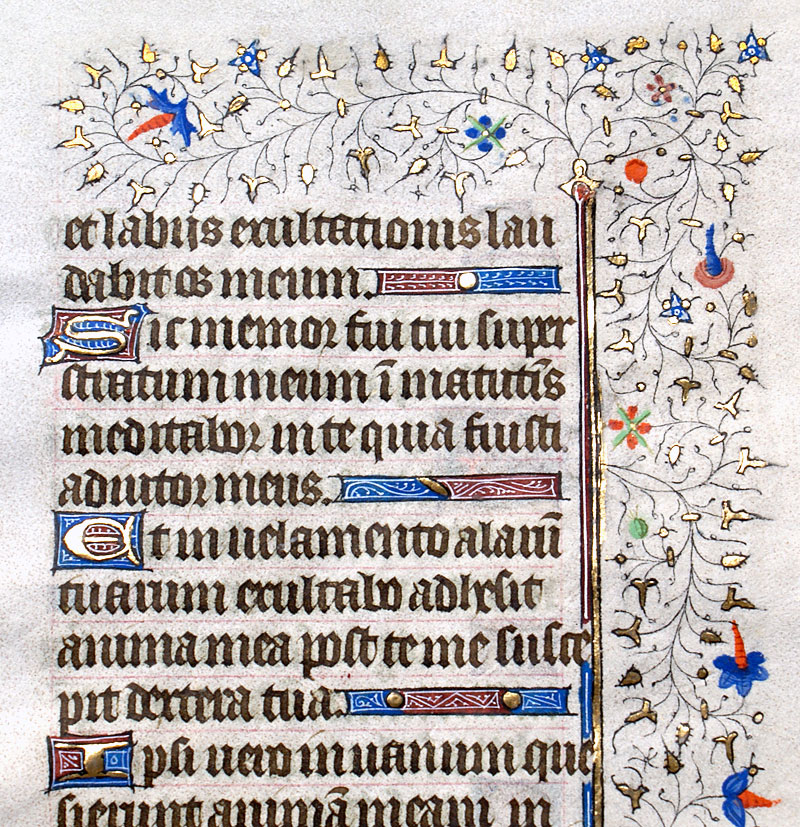 et labijs exultationis lau
dabit os meum.
Sic memor fui tui super
stratum meum ī matutīs
meditabor in te quia fuisti
adiutor meus.
Et in uelamento alarū
tuarum exultabo adhesit
anima mea post te me susce
pit dextera tua.
Ipsi uero in uanum que
sierunt animā meam in